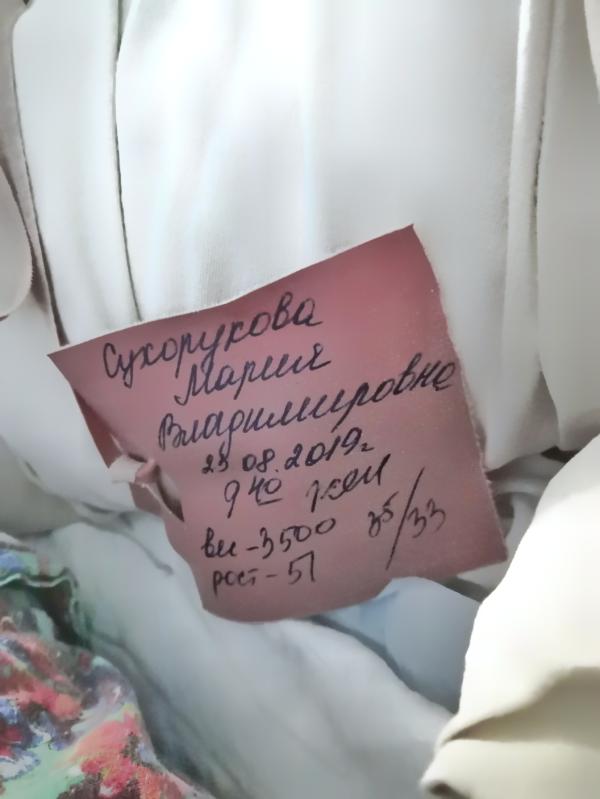 Сухорукова
Мария
Владимировна
23 08.2019г
9 40 жен
вес-3500 35/33
рост-51